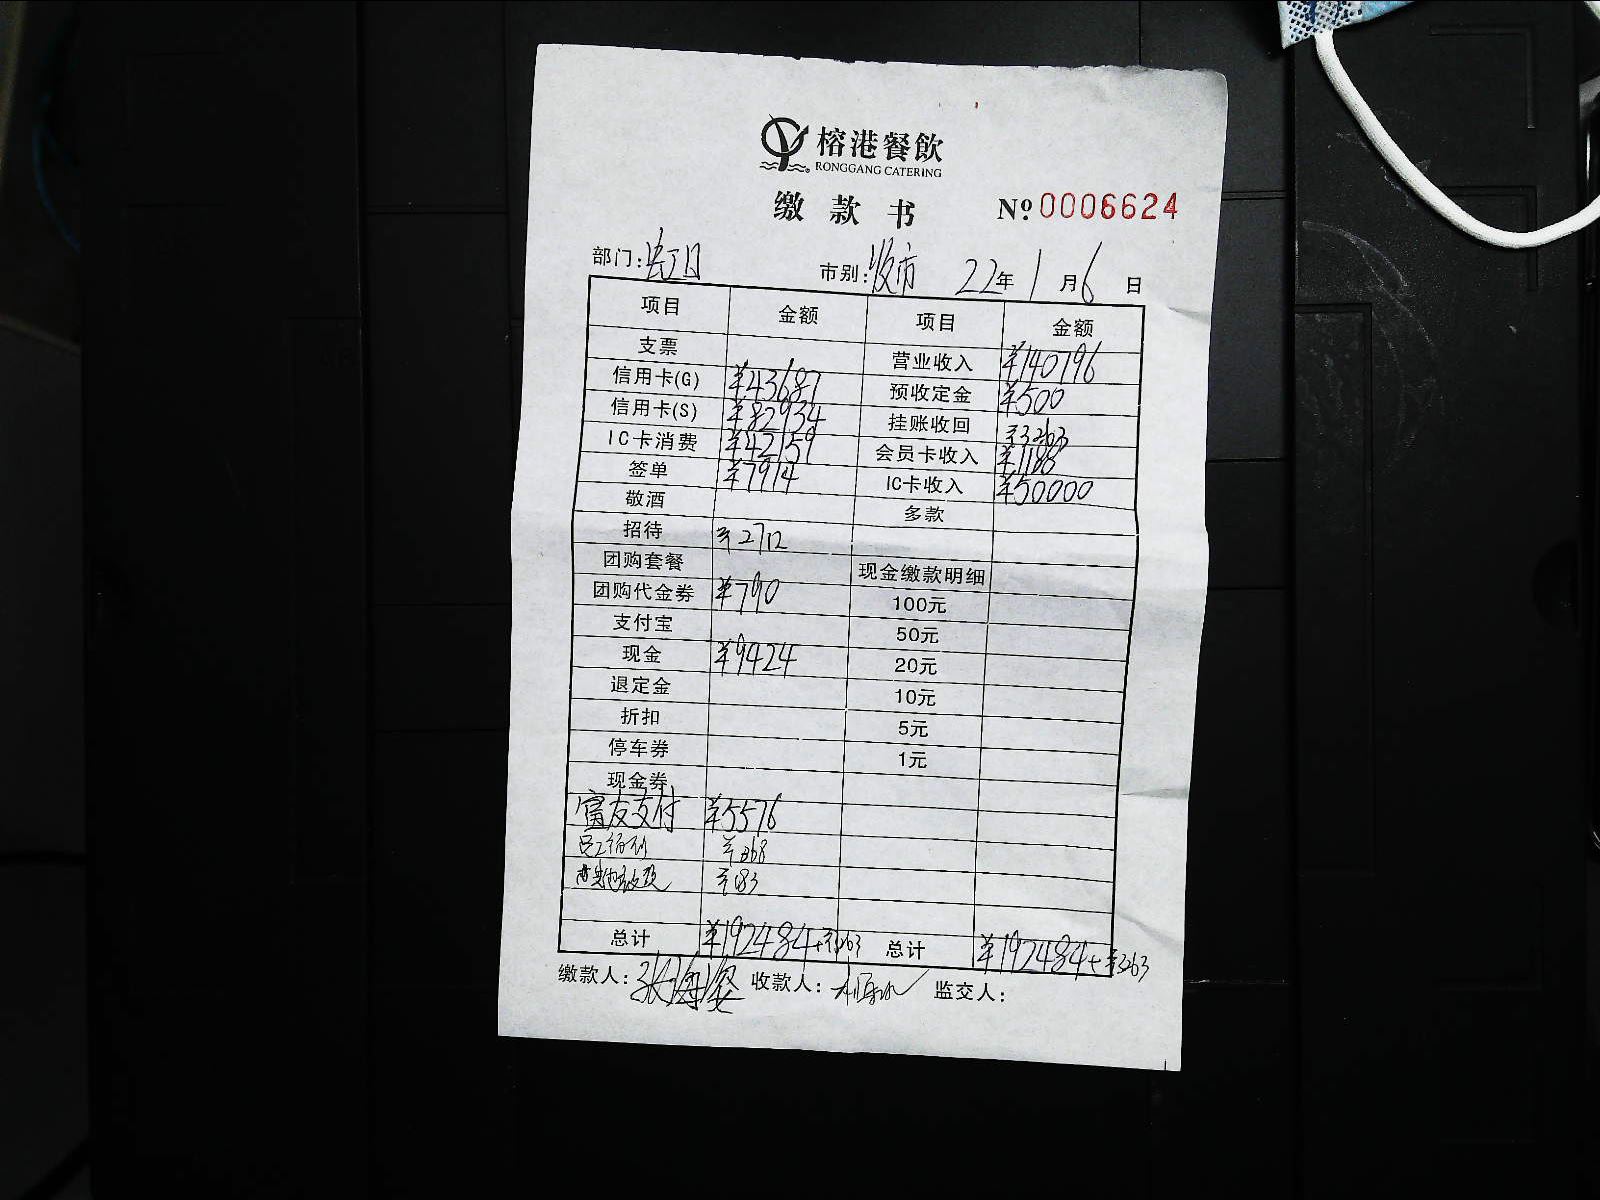 榕港餐飲
RONGGANG CATERING
缴款书 №0006624
部门: 市别:夜市 22年1月6日
项目 金额 项目 金额
支票 营业收入 ¥140796
信用卡(G) ¥43687 预收定金 ¥500
信用卡(S) ¥82934 挂账收回 ¥3263
IC卡消费 ¥42159 会员卡收入 ¥1188
签单 ¥7914 IC卡收入 ¥50000
敬酒 多款
招待 ¥2712
团购套餐 现金缴款明细
团购代金券 ¥790 100元
支付宝 50元
现金 ¥9424 20元
退定金 10元
折扣 5元
停车券 1元
现金券
富友支付 ¥5576
¥368
¥183
总计 ¥192484+¥3263 总计 ¥192484+¥3263
缴款人: 收款人: 监交人: